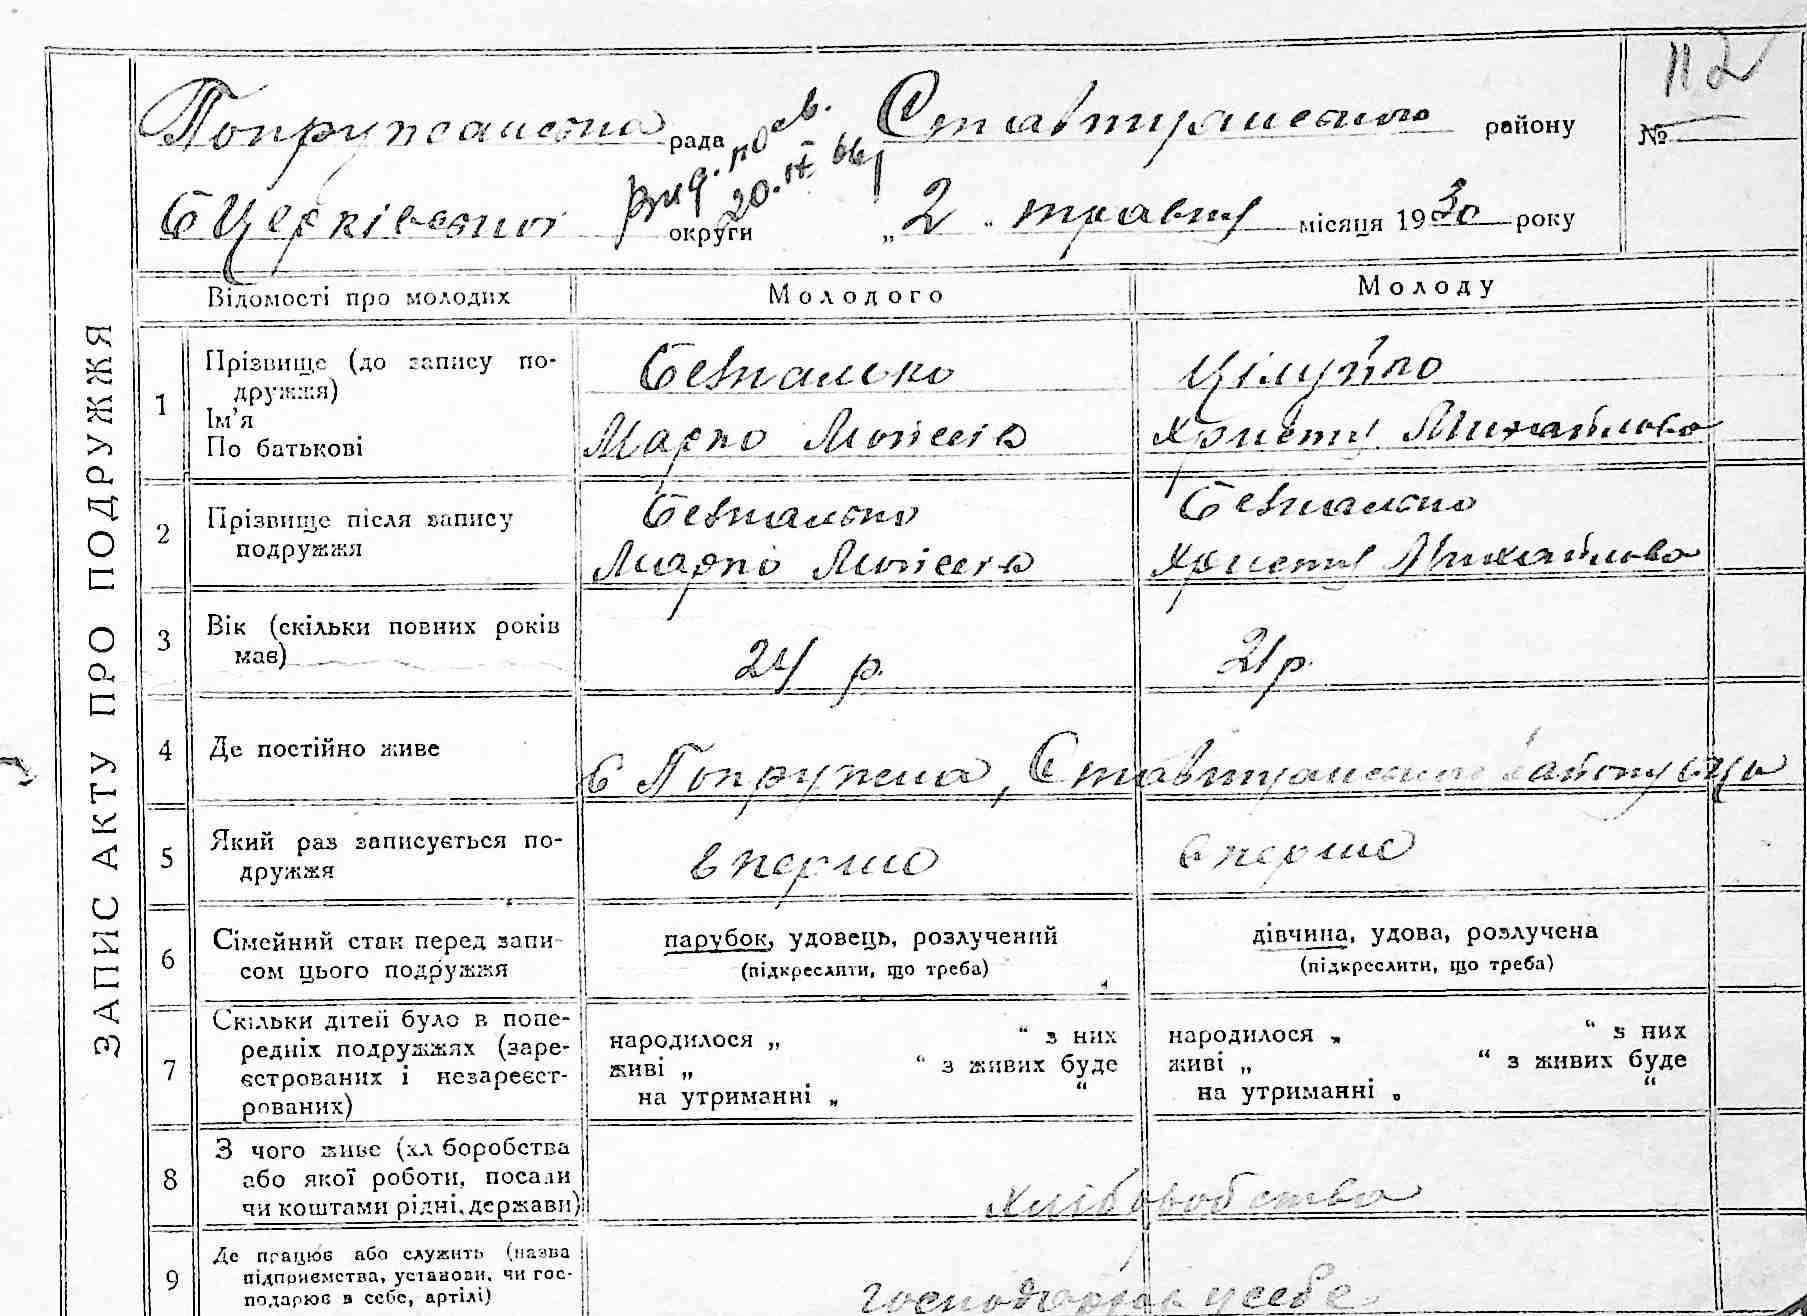 ЗАПИС АКТУ ПРО ПОДРУЖЖЯ
112
Попружанська рада Ставищанського району №
вид. по
20. IV 66
БЦерківської округи „2" травня місяця 1930 року
Відомості про молодих Молодого Молоду
1 Прізвище (до запису подружжя) Безпалько
Ім'я
По батькові Марко Мойсеїв Христя Михайлова
2 Прізвище після запису подружжя Безпалько Безпалько
Марко Мойсеїв Христя Михайлова
3 Вік (скільки повних років має) 24 р. 21 р.
4 Де постійно живе с Попружна, Ставищанського району
5 Який раз записується подружжя вперше вперше
6 Сімейний стан перед записом цього подружжя парубок, удовець, розлучений дівчина, удова, розлучена
(підкреслити, що треба) (підкреслити, що треба)
7 Скільки дітей було в попередніх подружжях (зареєстрованих і незареєстрованих) народилося „ “ з них народилося „ “ з них
живі „ “ з живих буде живі „ “ з живих буде
на утриманні „ “ на утриманні „ “
8 З чого живе (хліборобства або якої роботи, посади чи коштами рідні, держави) хліборобства
9 Де працює або служить (назва підприємства, установи, чи господарює в себе, артілі) господарює у себе